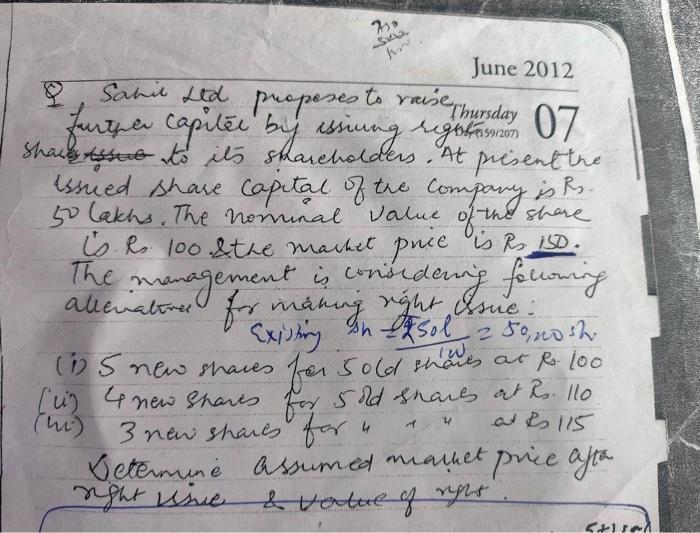 June 2012
Q Sahil Ltd proposes to raise
Thursday
07
further capital by issuing right
(159/207)
shares issue to its shareholders. At present the
issued share capital of the company is Rs.
50 lakhs. The nominal value of the share
is Rs. 100 & the market price is Rs 150.
The management is considering following
alternatives for making right issue:
Existing sh = ₹50l = 50,000 sh.
100
(i) 5 new shares for 5 old shares at Rs. 100
(ii) 4 new shares for 5 old shares at Rs. 110
(iii) 3 new shares for " " " at Rs 115
Determine assumed market price after
right issue & value of right.